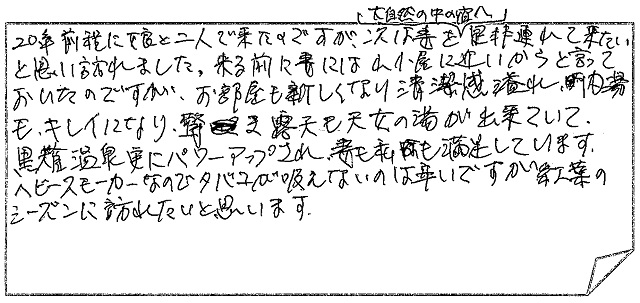 大自然の中の宿へ
20年前程に娘と二人で来たのですが、次は妻を是非連れて来たい
と思い訪れました。来る前に妻には山小屋に近いからと言って
おいたのですが、お部屋も新しくなり清潔感溢れ、内湯
も、キレイになり、露天も天女の湯が出来ていて、
黒薙温泉更にパワーアップされ、妻も私も満足しています。
ヘビースモーカーなのでタバコが吸えないのは辛いですが紅葉の
シーズンに訪れたいと思います。